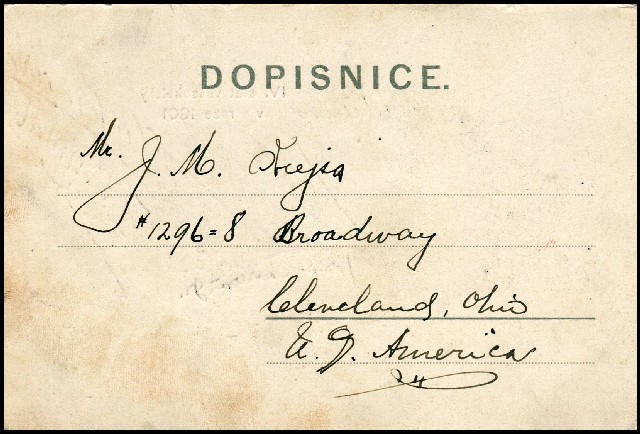 DOPISNICE.
Mr. J. M.
#1296=8 Broadway
Cleveland, Ohio
U. S. America